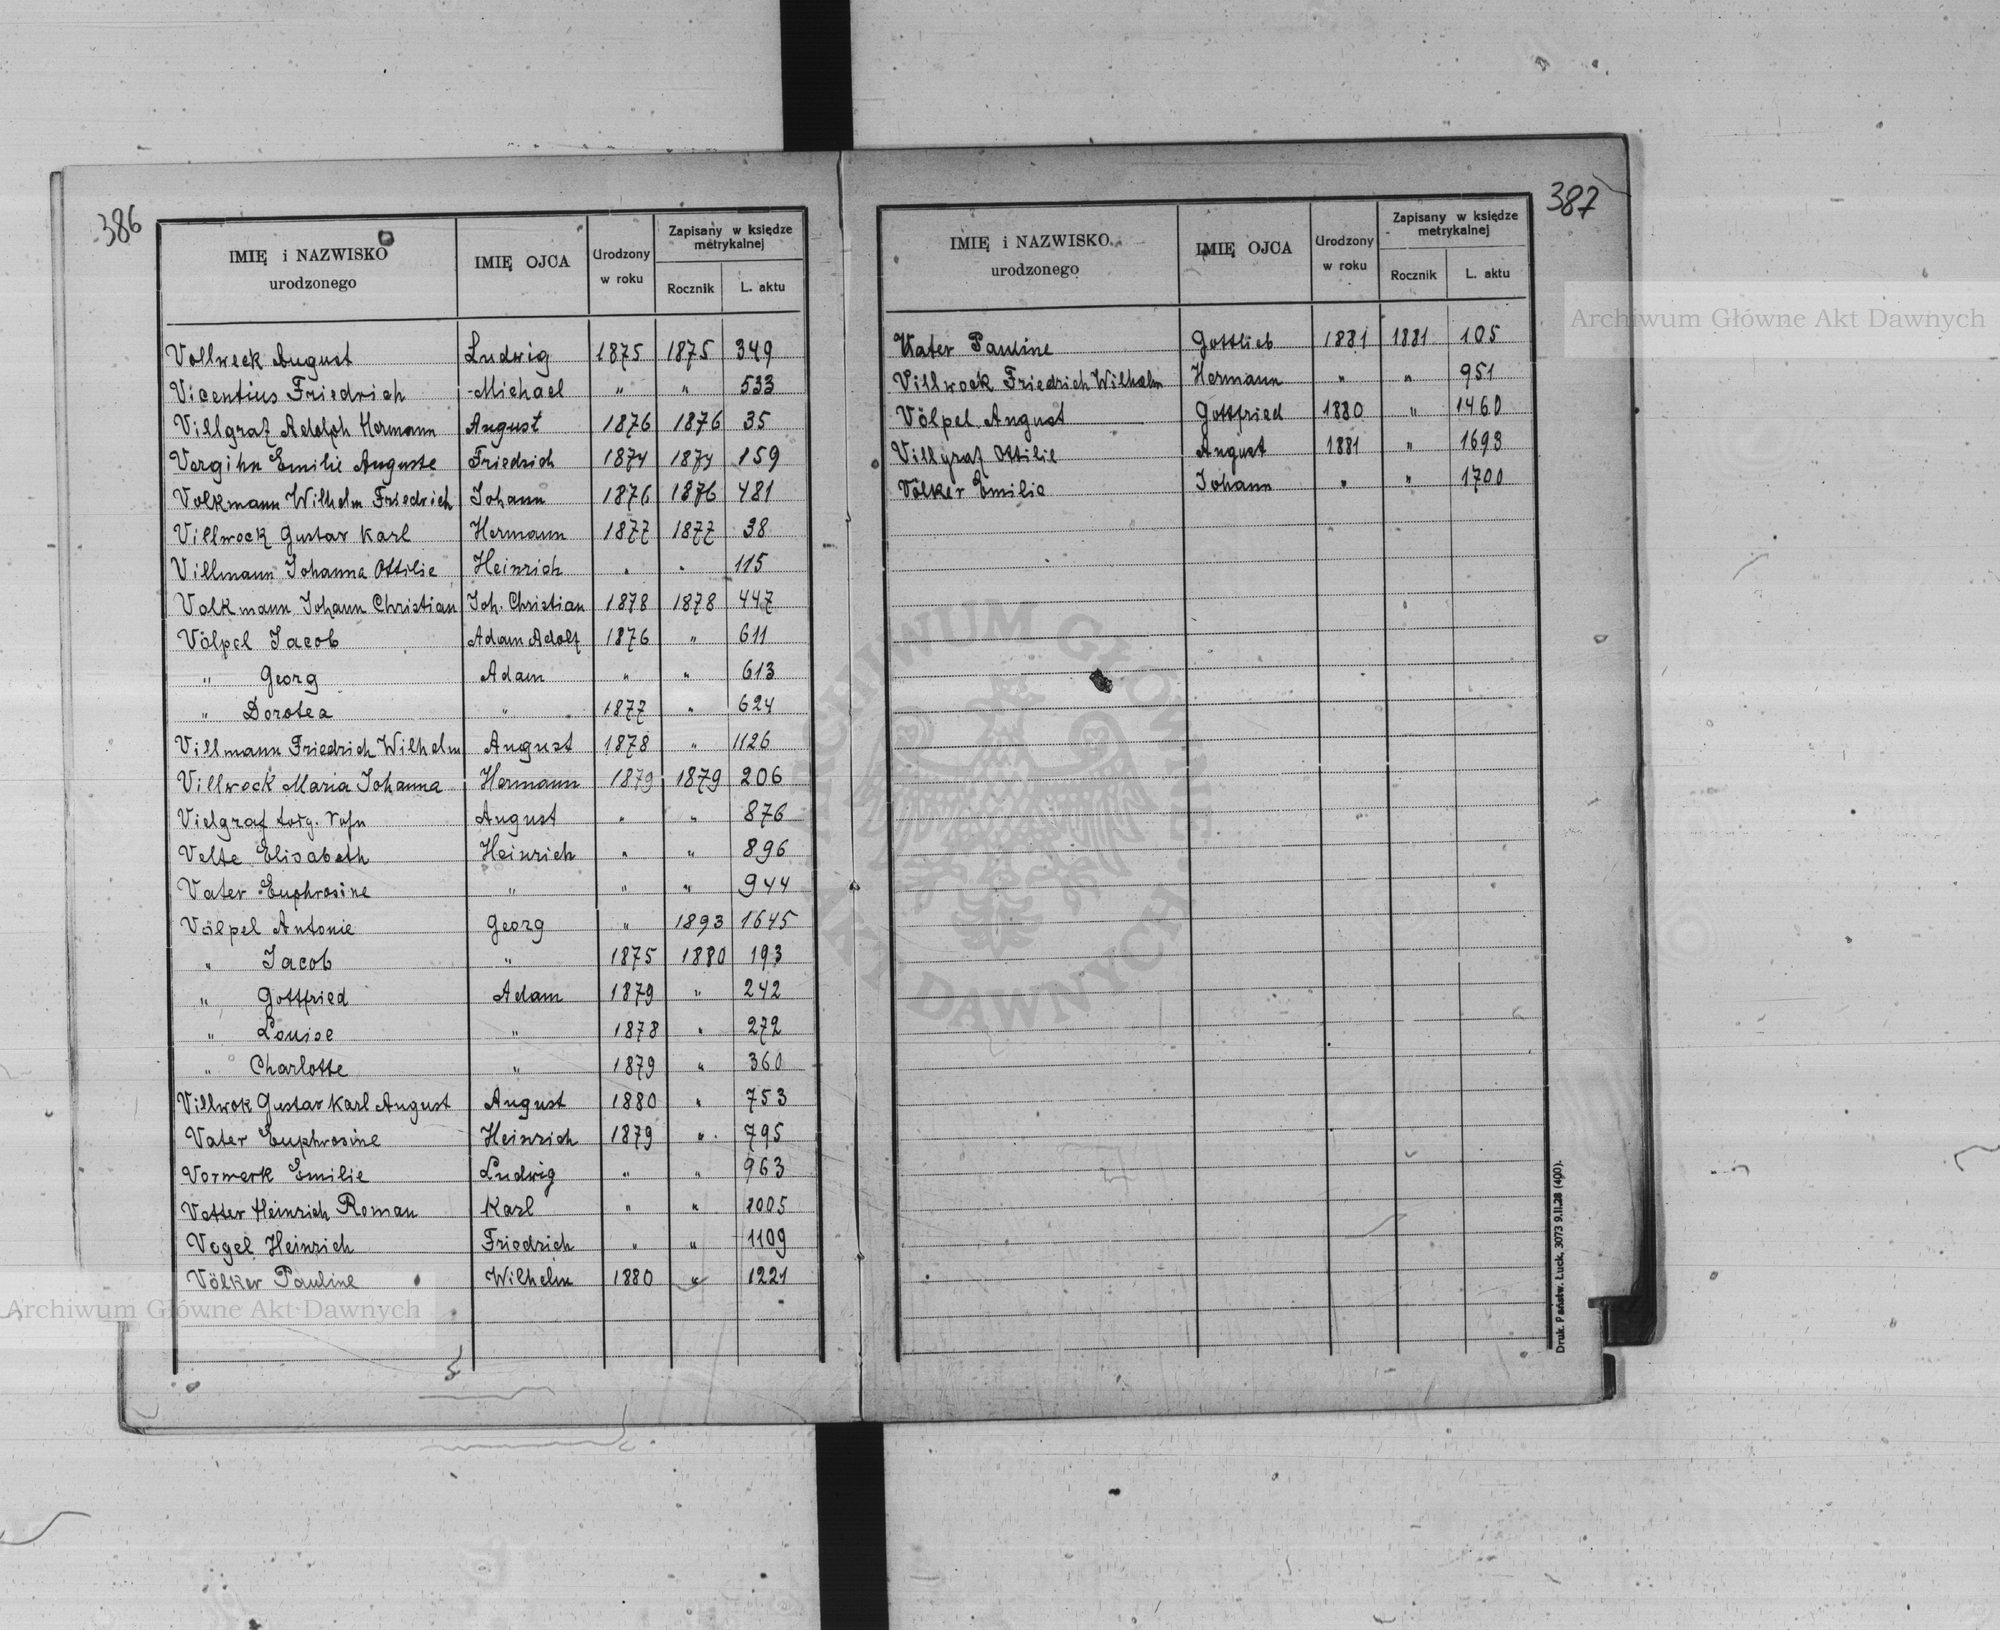 386
IMIĘ i NAZWISKO urodzonego | IMIĘ OJCA | Urodzony w roku | Zapisany w księdze metrykalnej
Rocznik | L. aktu
Vollweck August | Ludwig | 1875 | 1875 | 349
Vicentius Friedrich | Michael | " | " | 533
Villgraf Adolph Hermann | August | 1876 | 1876 | 35
Vergihn Emilie Auguste | Friedrich | 1874 | 1874 | 159
Volkmann Wilhelm Friedrich | Johann | 1876 | 1876 | 481
Villwock Gustav Karl | Hermann | 1877 | 1877 | 38
Villmann Johanna Ottilie | Heinrich | " | " | 115
Volkmann Johann Christian | Joh. Christian | 1878 | 1878 | 447
Völpel Jacob | Adam Adolf | 1876 | " | 611
" Georg | Adam | " | " | 613
" Dorotea | " | 1877 | " | 624
Villmann Friedrich Wilhelm | August | 1878 | " | 1126
Villwock Maria Johanna | Hermann | 1879 | 1879 | 206
Vielgraf | August | " | " | 876
Velte Elisabeth | Heinrich | " | " | 896
Vater Euphrosine | " | " | " | 944
Völpel Antonie | Georg | " | 1893 | 1645
" Jacob | " | 1875 | 1880 | 193
" Gottfried | Adam | 1879 | " | 242
" Louise | " | 1878 | " | 272
" Charlotte | " | 1879 | " | 360
Villwok Gustav Karl August | August | 1880 | " | 753
Vater Euphrosine | Heinrich | 1879 | " | 795
Vorwerk Emilie | Ludwig | " | " | 963
Vetter Heinrich Roman | Karl | " | " | 1005
Vogel Heinrich | Friedrich | " | " | 1109
Völker Pauline | Wilhelm | 1880 | " | 1221
387
IMIĘ i NAZWISKO urodzonego | IMIĘ OJCA | Urodzony w roku | Zapisany w księdze metrykalnej
Rocznik | L. aktu
Vater Pauline | Gottlieb | 1881 | 1881 | 105
Villwock Friedrich Wilhelm | Hermann | " | " | 951
Völpel August | Gottfried | 1880 | " | 1460
Villgraf Ottilie | August | 1881 | " | 1693
Völker Emilie | Johann | " | " | 1700
Druk. Państw. Łuck, 3073 9.II.28 (400).
Archiwum Główne Akt Dawnych
Archiwum Główne Akt Dawnych
ARCHIWUM GŁÓWNE AKT DAWNYCH